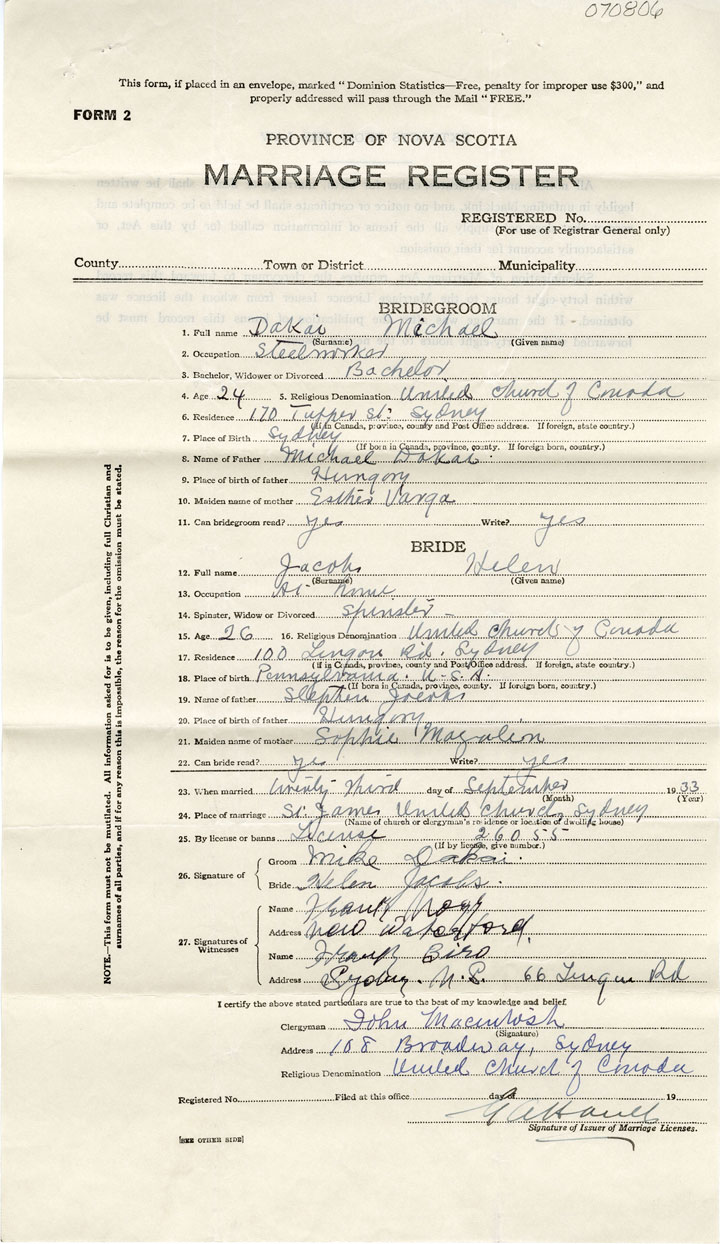 070806
This form, if placed in an envelope, marked "Dominion Statistics—Free, penalty for improper use $300," and
properly addressed will pass through the Mail "FREE."
FORM 2
PROVINCE OF NOVA SCOTIA
MARRIAGE REGISTER
REGISTERED No.
(For use of Registrar General only)
County Town or District Municipality
BRIDEGROOM
1. Full name Dakai Michael
(Surname) (Given name)
2. Occupation Steelworker
3. Bachelor, Widower or Divorced Bachelor
4. Age 24 5. Religious Denomination United Church of Canada
6. Residence 170 Tupper St. Sydney
(If in Canada, province, county and Post Office address. If foreign, state country.)
7. Place of Birth Sydney
(If born in Canada, province, county. If foreign born, country.)
8. Name of Father Michael Dakai
9. Place of birth of father Hungary
10. Maiden name of mother Esther Varga
11. Can bridegroom read? yes Write? yes
BRIDE
12. Full name Jacobs Helen
(Surname) (Given name)
13. Occupation At home
14. Spinster, Widow or Divorced Spinster
15. Age 26 16. Religious Denomination United Church of Canada
17. Residence 100 Lingan Rd. Sydney
(If in Canada, province, county and Post Office address. If foreign, state country.)
18. Place of birth Pennsylvania. U.S.A.
(If born in Canada, province, county. If foreign born, country.)
19. Name of father Stephen Jacobs
20. Place of birth of father Hungary
21. Maiden name of mother Sophie
22. Can bride read? yes Write? yes
23. When married twenty third day of September 1933
(Month) (Year)
24. Place of marriage St. James United Church, Sydney
(Name of church or clergyman's residence or location of dwelling house)
25. By license or banns License 26055
(If by license, give number.)
26. Signature of Groom Mike Dakai.
Bride Helen Jacobs.
27. Signatures of Witnesses
Name Frank
Address New Waterford.
Name Frank Biro
Address Sydney. N.S. 66 Lingan Rd
I certify the above stated particulars are true to the best of my knowledge and belief.
Clergyman John Macintosh
(Signature)
Address 108 Broadway, Sydney
Religious Denomination United Church of Canada
Registered No. Filed at this office day of 19
Signature of Issuer of Marriage Licenses.
[SEE OTHER SIDE]
NOTE.—This form must not be mutilated. All information asked for is to be given, including full Christian and
surnames of all parties, and if for any reason this is impossible, the reason for the omission must be stated.